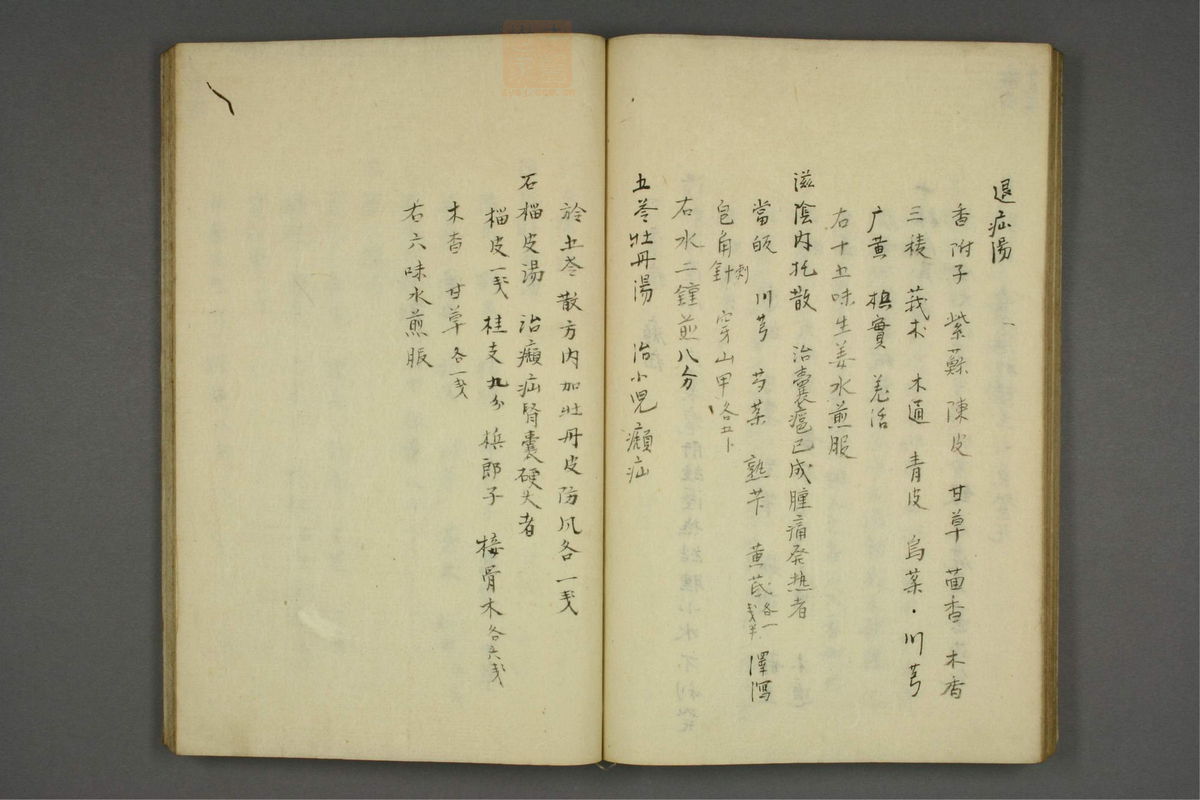 退疝湯
香附子 紫蘇 陳皮 甘草 茴香 木香
三棱 莪朮 木通 青皮 烏薬 川芎
广黄 枳實 羌活
右十五味生姜水煎服
滋陰内托散 治囊癰已成腫痛発热者
當皈 川芎 芍薬 熟芐 黄芪各一戔半 澤瀉
皂角針刺 穿山甲各五卜
右水二鍾煎八分
五苓牡丹湯 治小児㿗疝
於五苓散方内加牡丹皮防风各一戔
石榴皮湯 治㿗疝腎囊硬大者
榴皮一戔 桂支九分 槟郎子 接骨木各六戔
木香 甘草各一戔
右六味水煎服